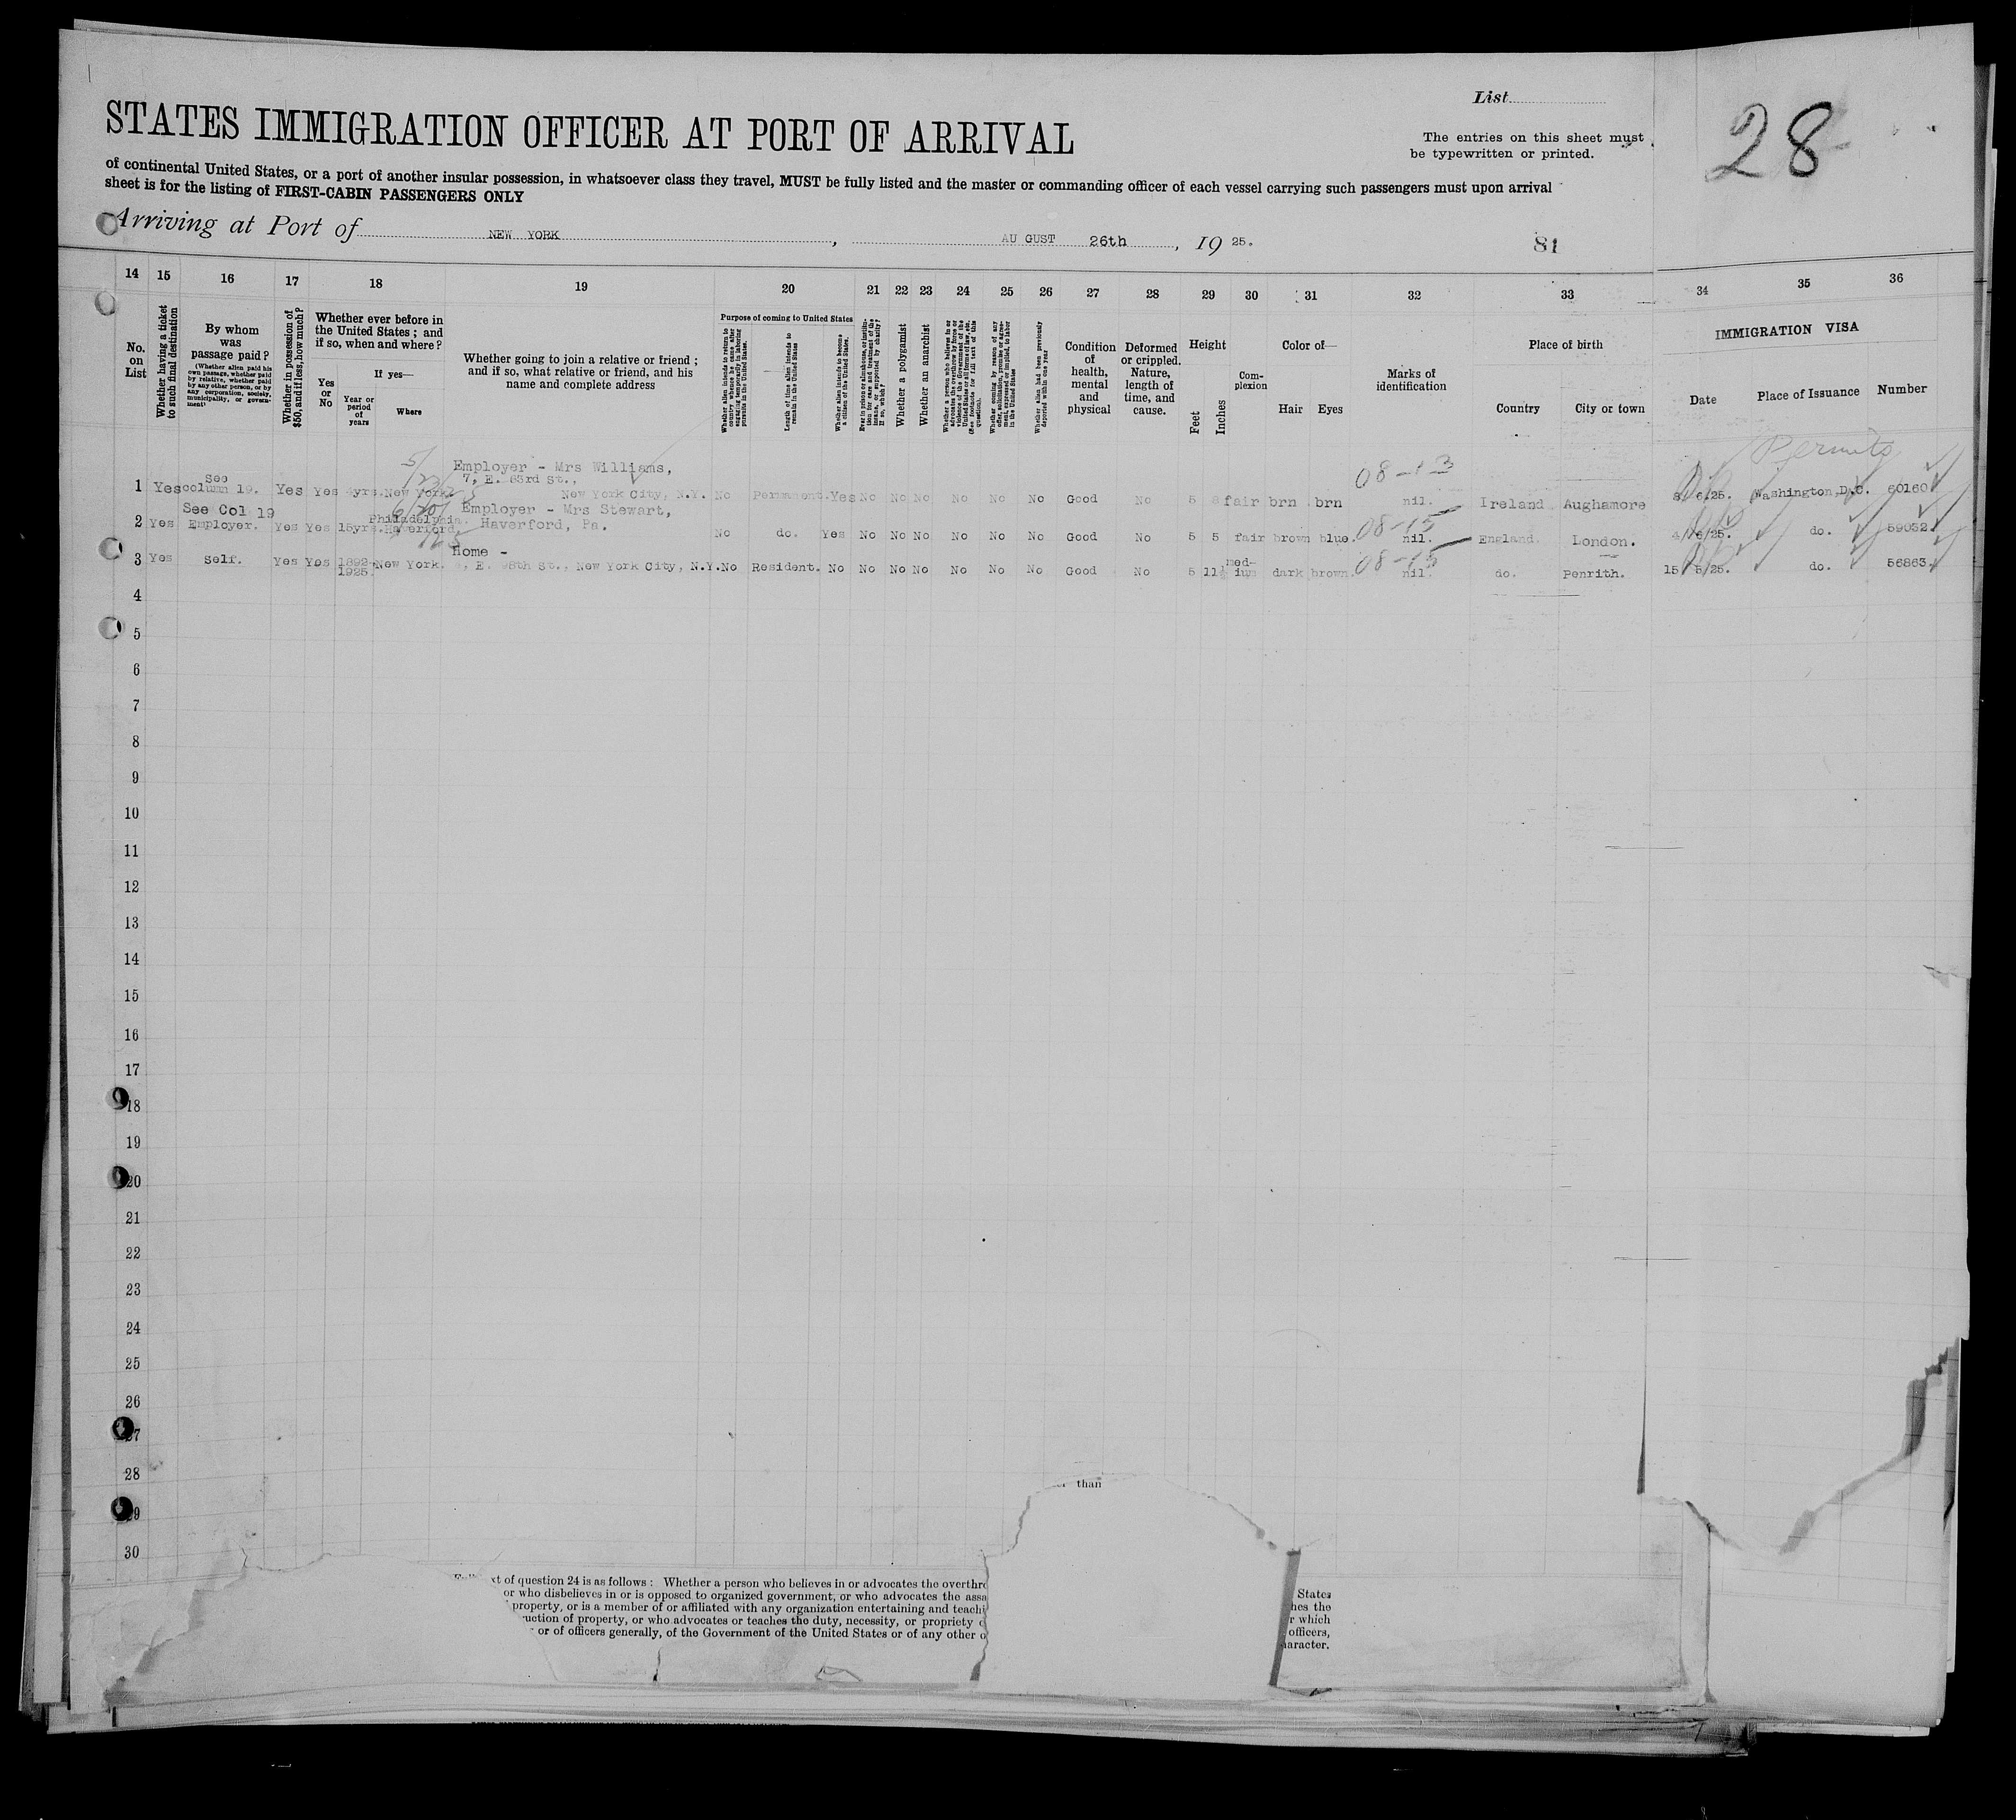 List
STATES IMMIGRATION OFFICER AT PORT OF ARRIVAL
The entries on this sheet must
be typewritten or printed.
28
of continental United States, or a port of another insular possession, in whatsoever class they travel, MUST be fully listed and the master or commanding officer of each vessel carrying such passengers must upon arrival
sheet is for the listing of FIRST-CABIN PASSENGERS ONLY
Arriving at Port of NEW YORK, AUGUST 26th, 19 25.
81
14 15 16 17 18 19 20 21 22 23 24 25 26 27 28 29 30 31 32 33 34 35 36
No. on List
Whether having a ticket to such final destination
By whom was passage paid?
(Whether alien paid his own passage, whether paid by relative, whether paid by any other person, or by any corporation, society, municipality, or government)
Whether in possession of $50, and if less, how much?
Whether ever before in the United States; and if so, when and where?
Yes or No
If yes—
Year or period of years
Where
Whether going to join a relative or friend; and if so, what relative or friend, and his name and complete address
Purpose of coming to United States
Whether alien intends to return to country whence he came after engaging temporarily in laboring pursuits in the United States.
Length of time alien intends to remain in the United States
Whether alien intends to become a citizen of the United States.
Ever in prison or almshouse, or institution for care and treatment of the insane, or supported by charity? If so, which?
Whether a polygamist
Whether an anarchist
Whether a person who believes in or advocates the overthrow by force or violence of the Government of the United States or all forms of law, etc. (See footnote for full text of this question).
Whether coming by reason of any offer, solicitation, promise or agreement, expressed or implied, to labor in the United States
Whether alien had been previously deported within one year
Condition of health, mental and physical
Deformed or crippled. Nature, length of time, and cause.
Height
Feet
Inches
Complexion
Color of—
Hair Eyes
Marks of identification
Place of birth
Country City or town
IMMIGRATION VISA
Date Place of Issuance Number
Permits
1 Yes See column 19. Yes Yes 4yrs. New York Employer - Mrs Williams, 7, E. 83rd St., New York City, N.Y. No Permanent. Yes No No No No No No Good No 5 8 fair brn brn 08-13 nil. Ireland Aughamore 8/6/25. Washington, D.C. 60160
2 Yes See Col 19 Employer. Yes Yes 15yrs. Philadelphia. Haverford Employer - Mrs Stewart, Haverford, Pa. No do. Yes No No No No No No Good No 5 5 fair brown blue. 08-15 nil. England. London. 4/6/25. do. 59032.
3 Yes Self. Yes Yes 1892-1925. New York. Home - E. 98th St., New York City, N.Y. No Resident. No No No No No No No Good No 5 11½ med-ium dark brown. 08-15 nil. do. Penrith. 15/5/25. do. 56863.
4
5
6
7
8
9
10
11
12
13
14
15
16
17
18
19
20
21
22
23
24
25
26
27
28
29
30
than
xt of question 24 is as follows: Whether a person who believes in or advocates the overthr
or who disbelieves in or is opposed to organized government, or who advocates the assa
property, or is a member of or affiliated with any organization entertaining and teachi
uction of property, or who advocates or teaches the duty, necessity, or propriety
or of officers generally, of the Government of the United States or of any other o
States
hes the
r which
officers,
haracter.